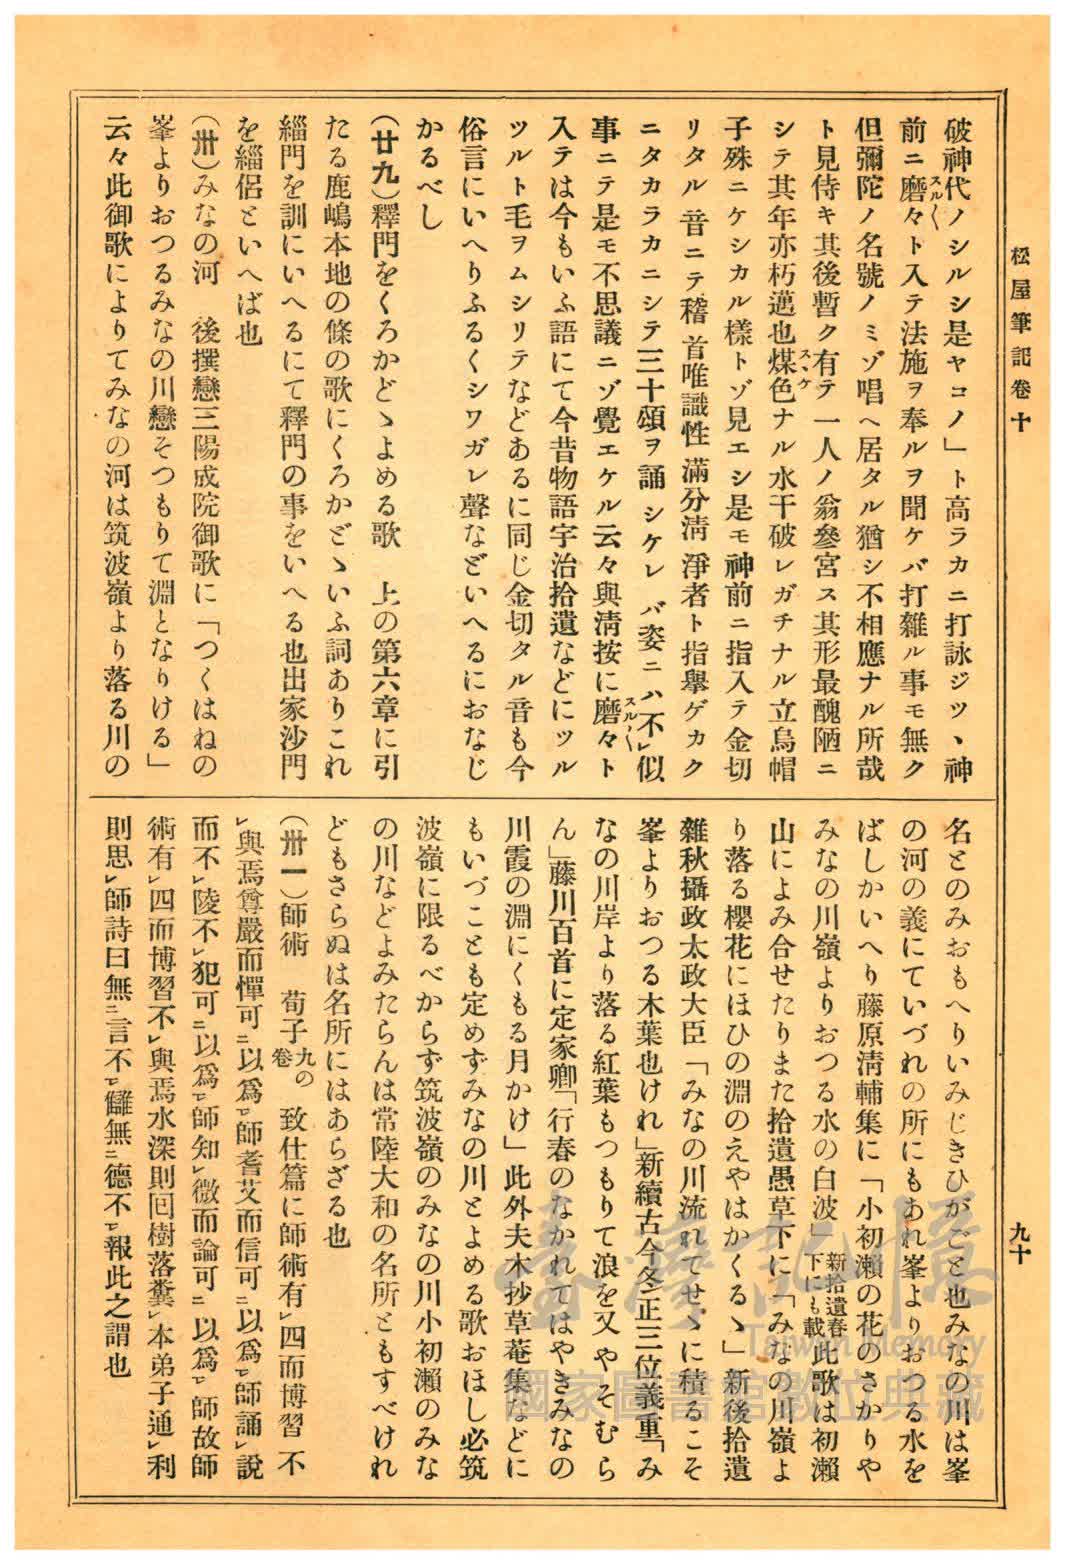 松屋筆記卷十
九十
破神代ノシルシ是ヤコノ」ト高ラカニ打詠ジツヽ神
前ニ磨々(スル〱)ト入テ法施ヲ奉ルヲ聞ケバ打雜ル事モ無ク
但彌陀ノ名號ノミゾ唱ヘ居タル猶シ不相應ナル所哉
ト見侍キ其後暫ク有テ一人ノ翁參宮ス其形最醜陋ニ
シテ其年亦朽邁也煤(スヽケ)色ナル水干破レガチナル立烏帽
子殊ニケシカル樣トゾ見エシ是モ神前ニ指入テ金切
リタル音ニテ稽首唯識性滿分淸淨者ト指擧ゲカク
ニタカラカニシテ三十頌ヲ誦シケレバ姿ニハ不レ似
事ニテ是モ不思議ニゾ覺エケル云々與淸按に磨々(スル〱)ト
入テは今もいふ語にて今昔物語宇治拾遺などにツル
ツルト毛ヲムシリテなどあるに同じ金切タル音も今
俗言にいへりふるくシワガレ聲などいへるにおなじ
かるべし
(廿九)釋門をくろかどゝよめる歌　上の第六章に引
たる鹿嶋本地の條の歌にくろかどゝいふ詞ありこれ
緇門を訓にいへるにて釋門の事をいへる也出家沙門
を緇侶といへば也
(卅)みなの河　後撰戀三陽成院御歌に「つくはねの
峯よりおつるみなの川戀そつもりて淵となりける」
云々此御歌によりてみなの河は筑波嶺より落る川の
名とのみおもへりいみじきひがごと也みなの川は峯
の河の義にていづれの所にもあれ峯よりおつる水を
ばしかいへり藤原淸輔集に「小初瀨の花のさかりや
みなの川嶺よりおつる水の白波」新拾遺春下にも載此歌は初瀨
山によみ合せたりまた拾遺愚草下に「みなの川嶺よ
り落る櫻花にほひの淵のえやはかくるゝ」新後拾遺
雜秋攝政太政大臣「みなの川流れてせゝに積るこそ
峯よりおつる木葉也けれ」新續古今冬正三位義重「み
なの川岸より落る紅葉もつもりて浪を又やそむら
ん」藤川百首に定家卿「行春のなかれてはやきみなの
川霞の淵にくもる月かけ」此外夫木抄草菴集などに
もいづことも定めずみなの川とよめる歌おほし必筑
波嶺に限るべからず筑波嶺のみなの川小初瀨のみな
の川などよみたらんは常陸大和の名所ともすべけれ
どもさらぬは名所にはあらざる也
(卅一)師術　荀子九の卷　致仕篇に師術有レ四而博習不
レ與焉尊嚴而憚可三以爲二師耆艾而信可三以爲二師誦レ說
而不レ陵不レ犯可三以爲二師知レ微而論可三以爲二師故師
術有レ四而博習不レ與焉水深則囘樹落糞レ本弟子通レ利
則思レ師詩曰無二言不一レ讎無二德不一レ報此之謂也
臺灣記憶
Taiwan Memory
國家圖書館數位典藏